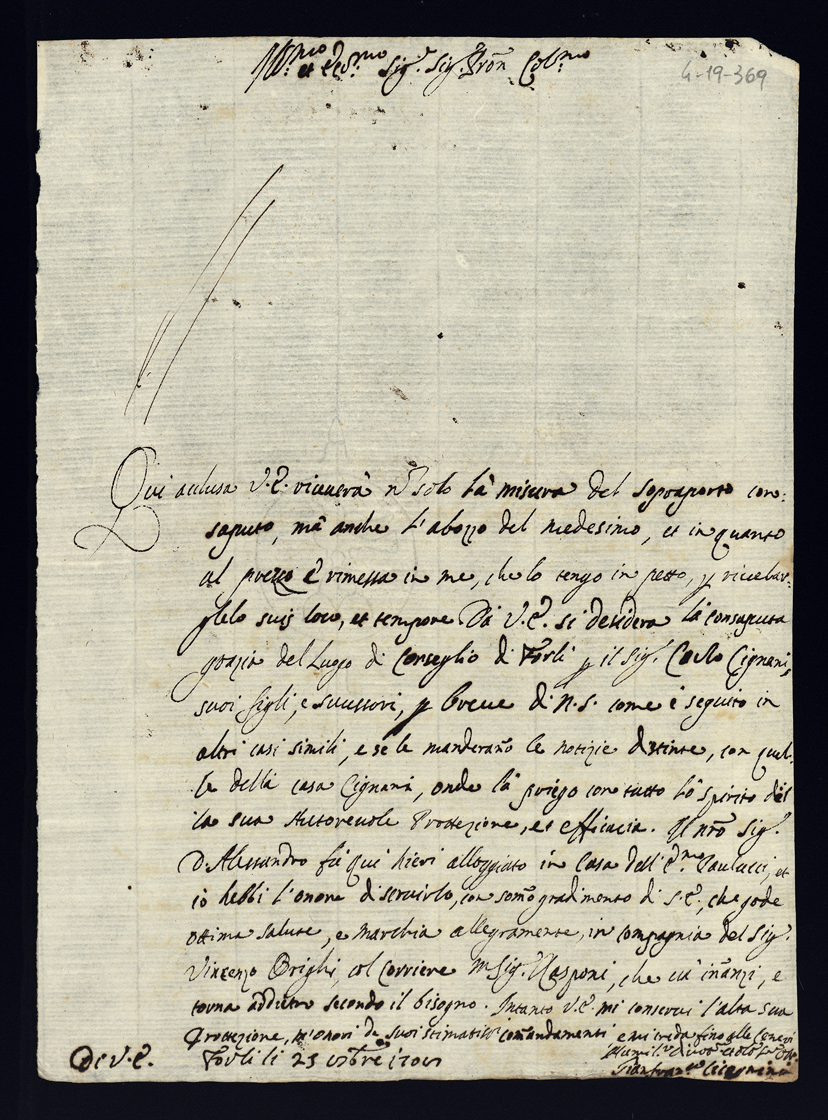 Ill.mo et Ecc.mo Sig.r Sig.r Pron Col.mo
4-19-369
Qui acclusa V.E. riceverà nō solo la misura del sopraporto con-
saputo, mà anche l'abozzo del medesimo, et in quanto
al prezzo è rimessa in me, che lo tengo in petto, p
suis loco, et tempore Da V.E. si desidera la consaputa
grazia del Luogo di Conseglio di Forlì p il Sig.r Carlo Cignani,
suoi figli, e successori, p breve di N.S. come è seguito in
altri casi simili, e se le manderaño le notizie distinte, con quel-
le della casa Cignani, onde la priego con tutto lo spirito del
la sua Autorevole Protezione, et efficacia. Il nrō Sig.r
D. Alessandro fù qui hieri alloggiato in Casa dell' E.mo Paulucci, et
io hebbi l'onore di servirlo, con somō gradimento di S.E., che gode
ottima salute, e marchia allegramente, in compagnia del Sig.r
Vincenzo Brighi, col Corriere M Sig.r Rasponi, che và iñanzi, e
torna addietro secondo il bisogno. Intanto V.E. mi conservi l'alta sua
Protezione, m'onori de suoi stimatis comandamenti e mi creda fino alle Ceneri
Di V.E. Forlì li 23